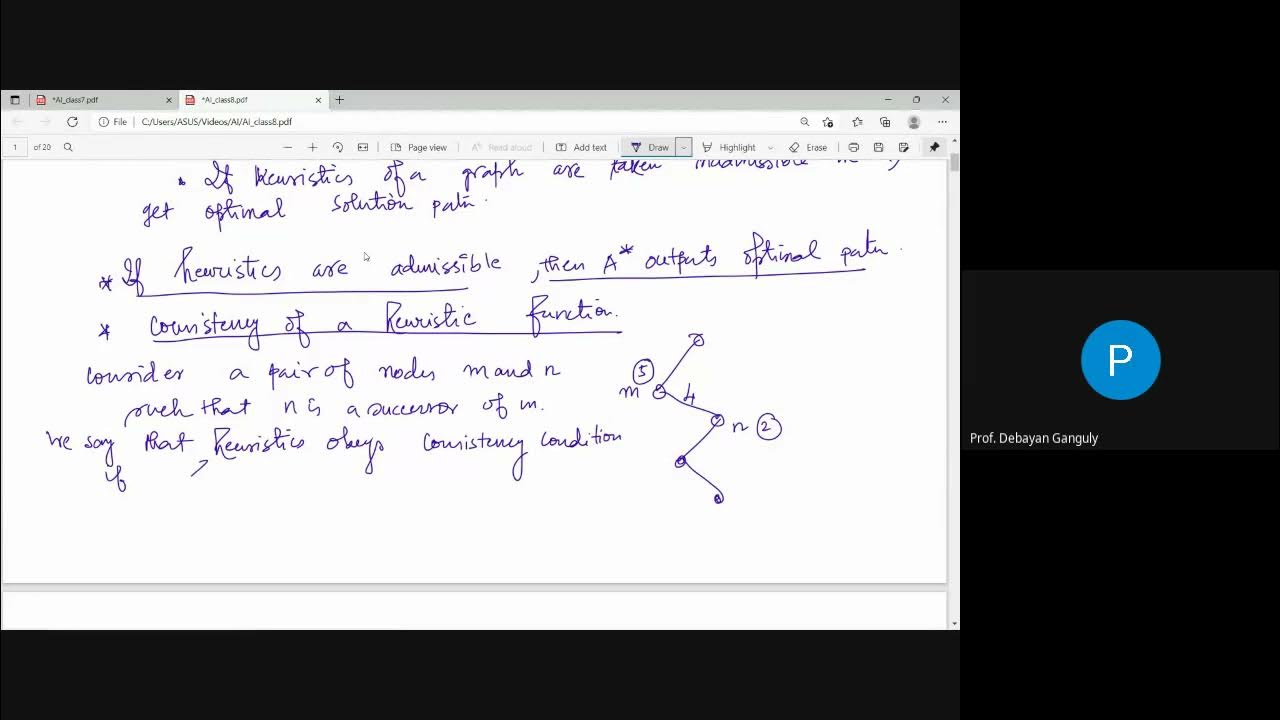 *AI_class7.pdf
*AI_class8.pdf
File C:/Users/ASUS/Videos/AI/AI_class8.pdf
1 of 20 Page view Read aloud Add text Draw Highlight Erase
• If heuristics of a graph are taken inadmissible
get optimal solution path.
* If heuristics are admissible, then A* outputs optimal path.
* Consistency of a heuristic function.
Consider a pair of nodes m and n
such that n is a successor of m.
We say that heuristics obeys consistency condition
if
5
m 4
n 2
P
Prof. Debayan Ganguly